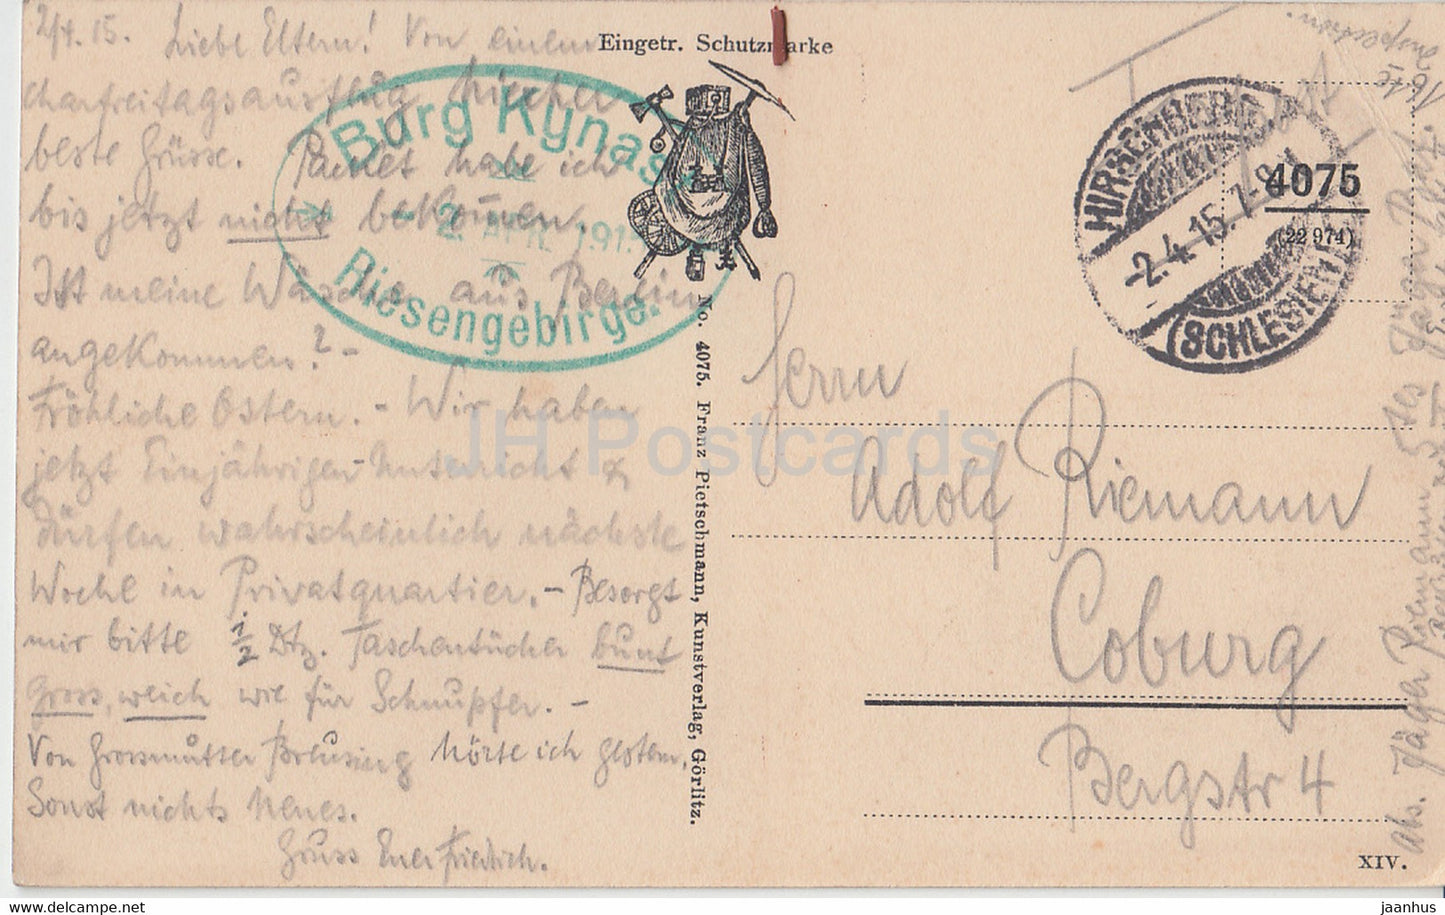 2/4. 15. Liebe Eltern! Von einem
Charfreitagsausflug hierher
beste Grüsse. Packet habe ich
bis jetzt nicht bekommen.
Ist meine Wäsche aus Berlin
angekommen? -
Fröhliche Ostern. - Wir haben
jetzt Einjährigen-Unterricht &
dürfen wahrscheinlich nächste
Woche in Privatquartier. - Besorgt
mir bitte 1/2 Dtz. Taschentücher bunt
gross, weich wie für Schnupfer. -
Von Grossmutter Breusing hörte ich gestern.
Sonst nichts Neues.
Gruss Euer Friedrich.
Burg Kynast
2. Apr. 1915
Riesengebirge.
Eingetr. Schutzmarke
No. 4075. Franz Pietschmann, Kunstverlag, Görlitz.
HIRSCHBERG
-2.4.15. 7-8N
(SCHLESIEN)
4075
(22 974)
Herrn
Adolf Riemann
Coburg
Bergstr 4
XIV.
Abs. Jäger Riemann 5tes Jäger
JH Postcards
www.jhpostcards.com
jaanhus